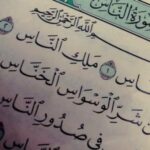 سُورَةُ النَّاسِ
بِسْمِ اللَّهِ الرَّحْمَٰنِ الرَّحِيمِ
ـاسِ ١ مَلِكِ النَّاسِ ٢
شَرِّ الْوَسْوَاسِ الْخَنَّاسِ
فِي صُدُورِ النَّاسِ